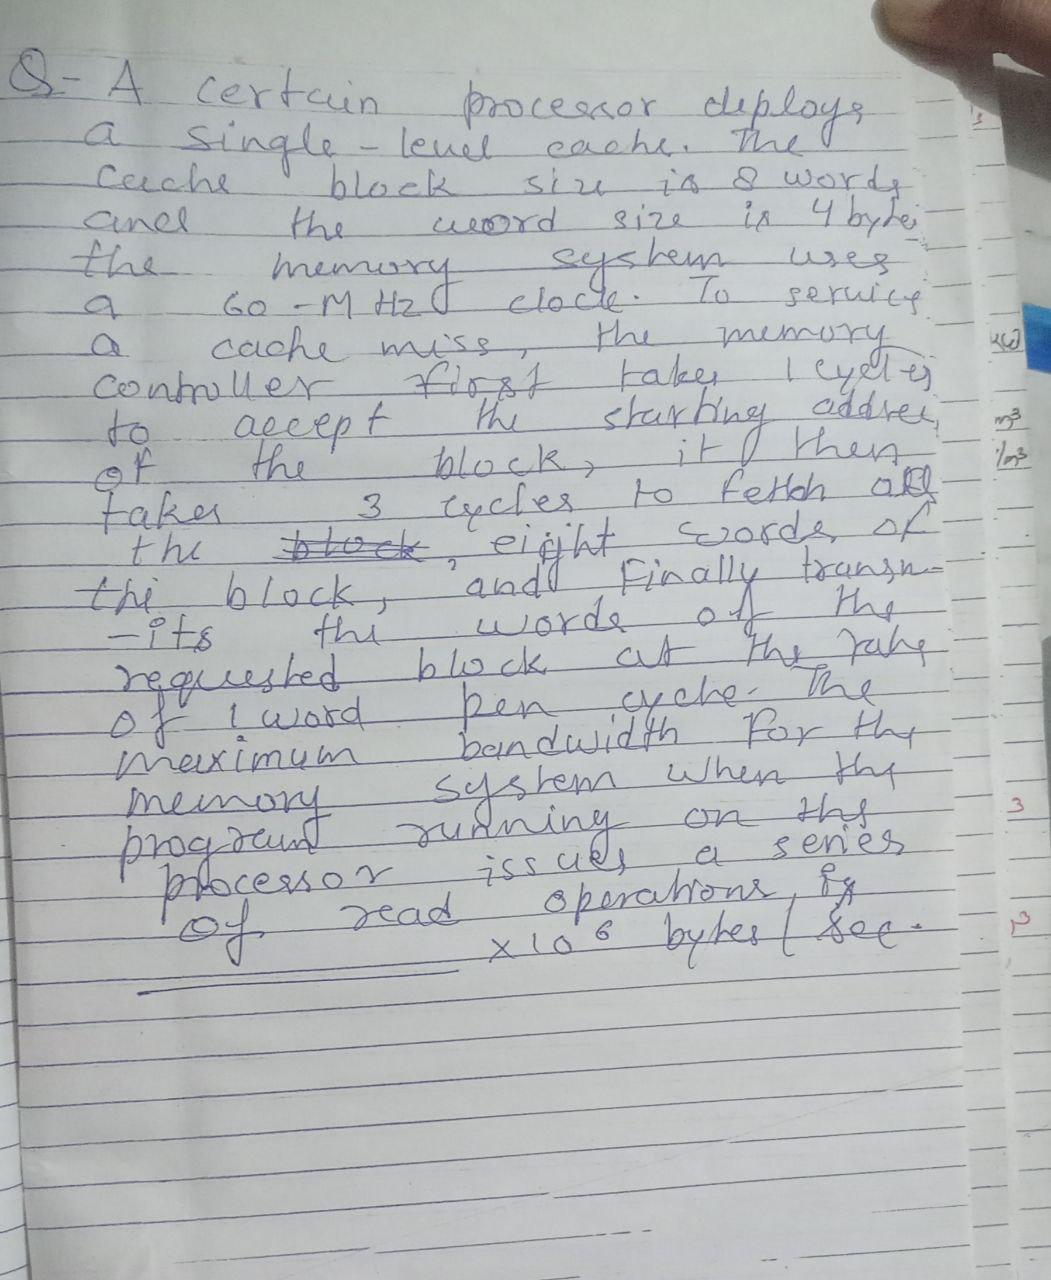 Q- A certain processor deploys
a single-level cache. The
cache block size is 8 words
and the word size is 4 bytes
the memory system uses
a 60-MHz clock. To service
a cache miss, the memory
controller first takes 1 cycles
to accept the starting address
of the block, it then
takes 3 cycles to fetch all
the block, eight words of
the block, and finally transm-
-its the words of the
requested block at the rate
of 1 word per cycle. The
maximum bandwidth for the
memory system when the
program running on the
processor issues a series
of read operations is
x10⁶ bytes/sec.
m³
/m³
3